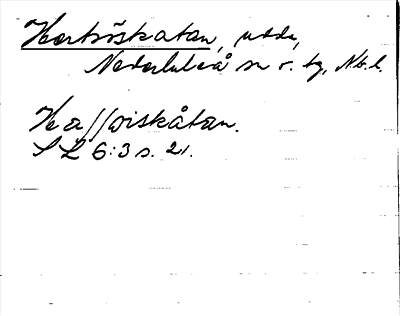 Hertsöskatan, udde,
Nederluleå sn r. tg, Nb. l.
Ha//wiskåtan.
SL 6:3 s. 21.